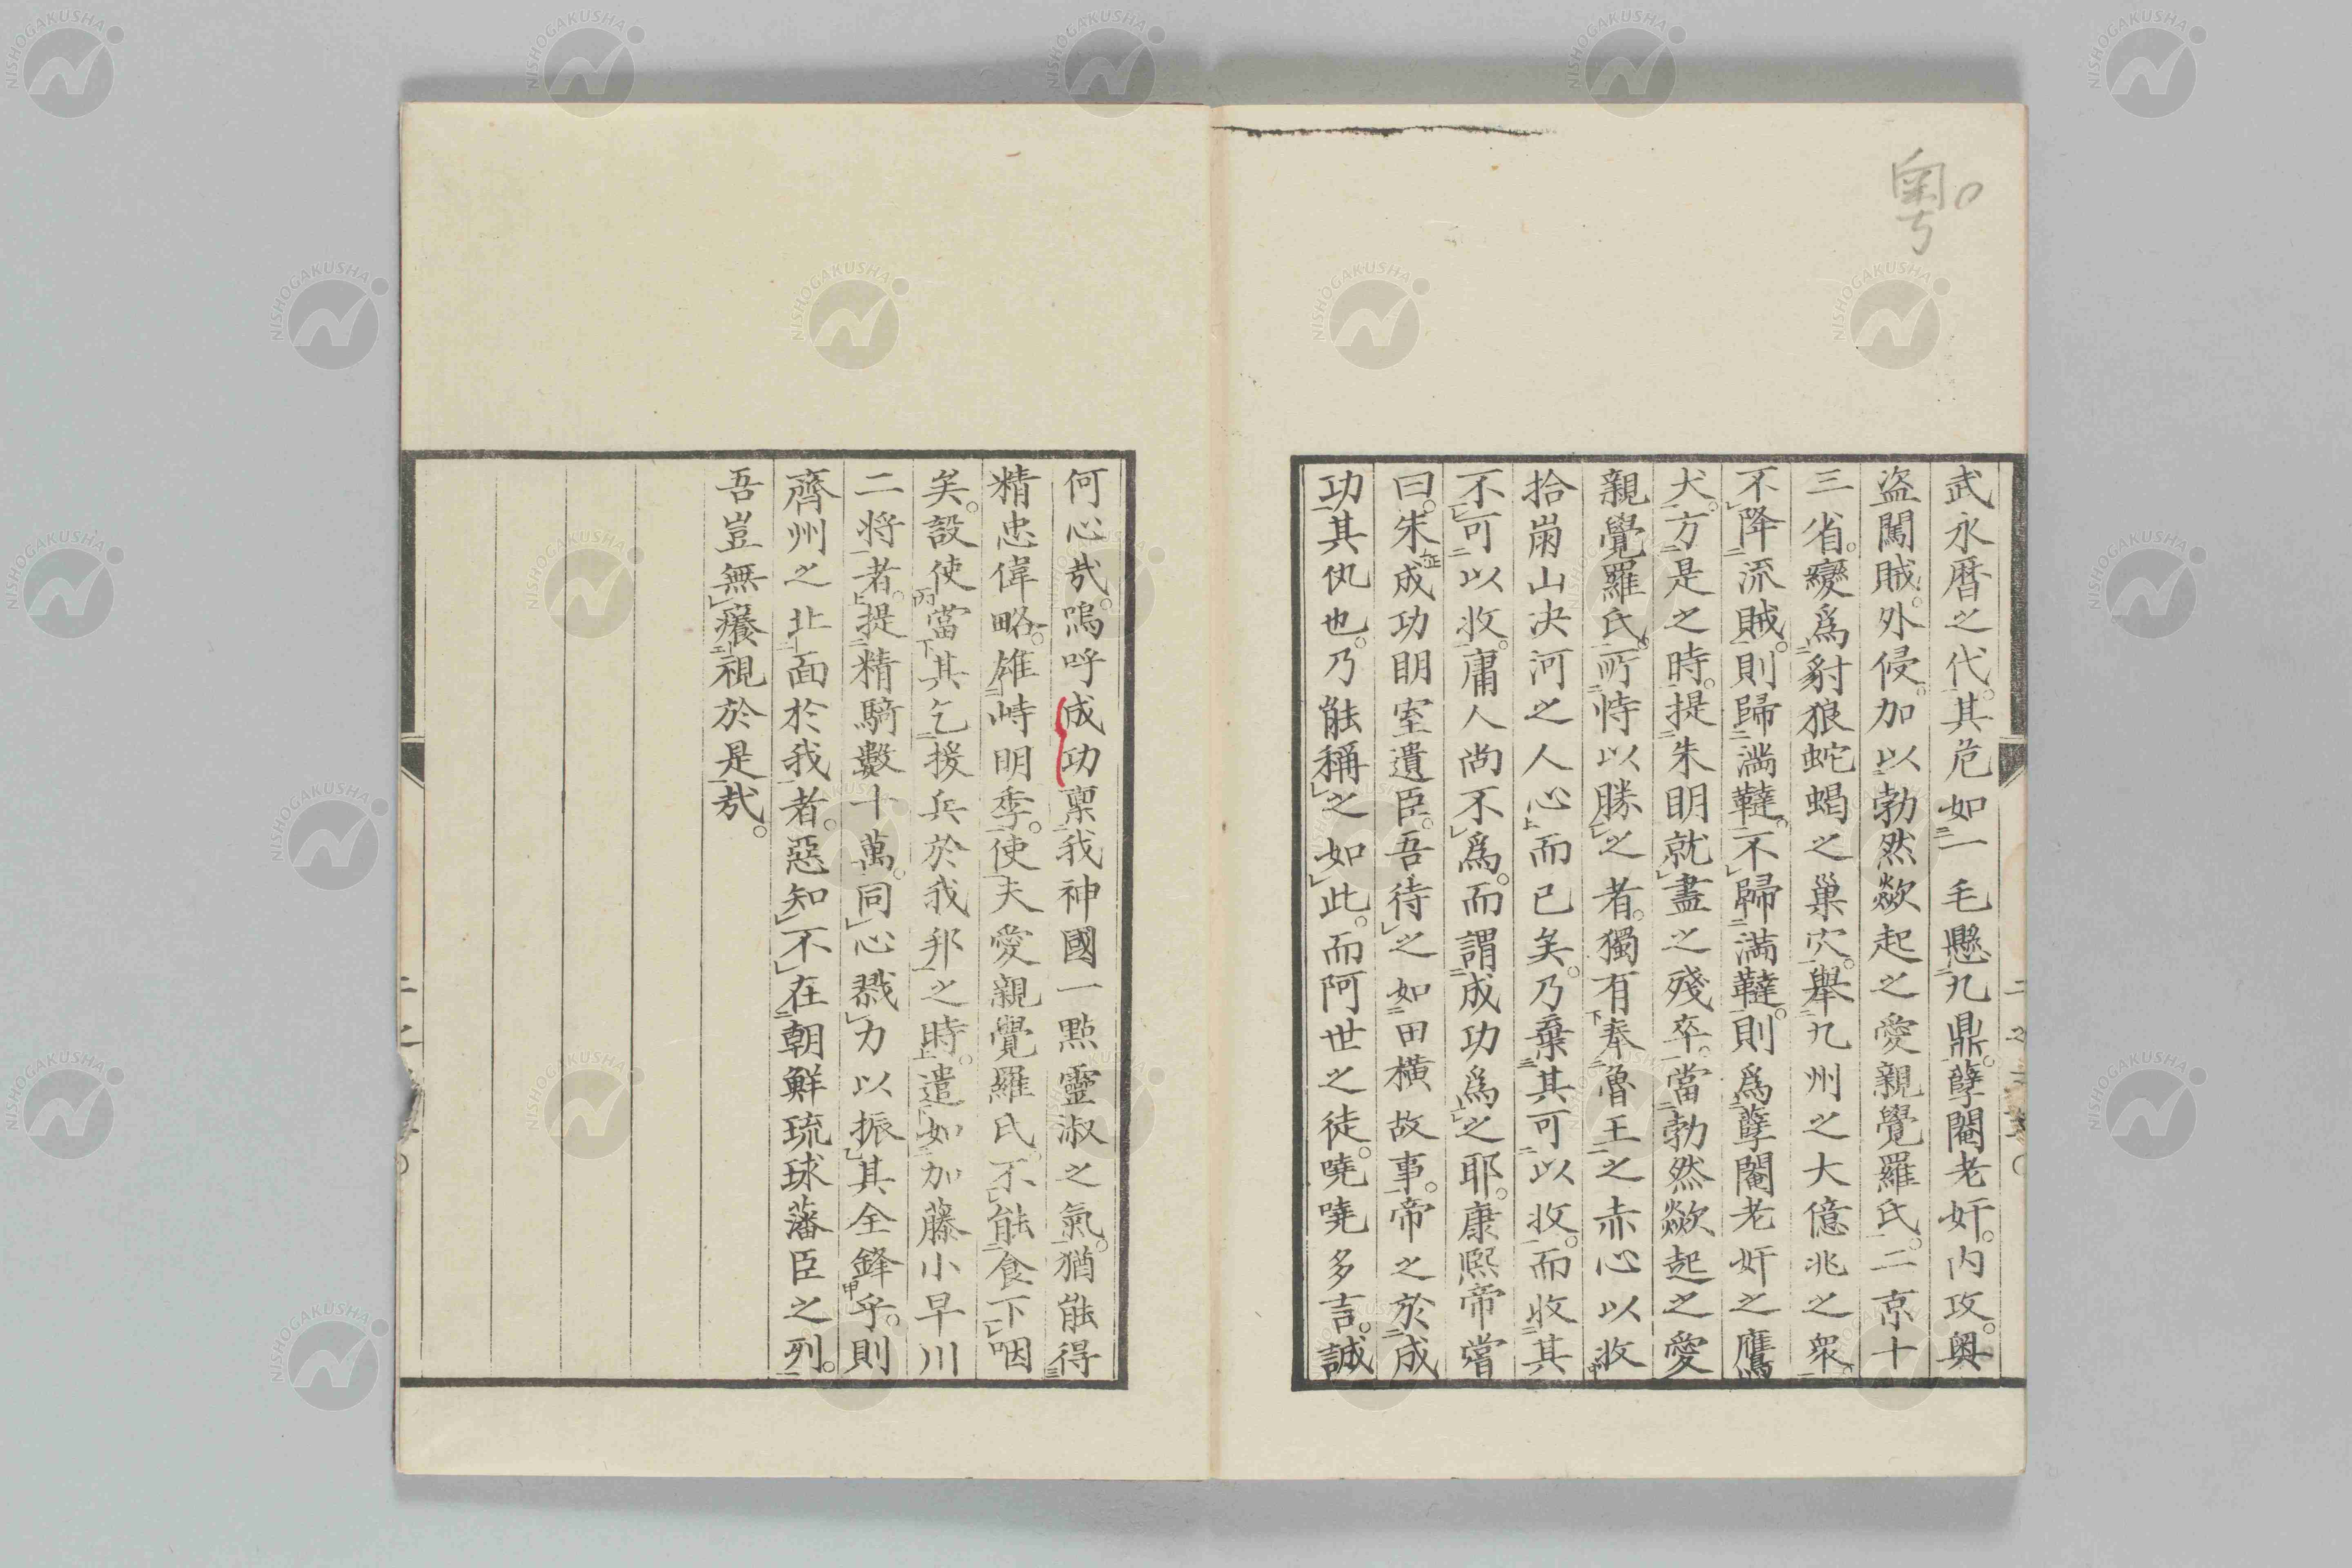 粤。
武永曆之代。其危如一毛懸九鼎。孽閹老奸。内攻。奥
盗闖賊。外侵。加以勃然歘起之愛親覺羅氏。二京十
三省。變爲豺狼蛇蝎之巢穴。舉九州之大億兆之衆。
不降流賊。則歸満韃。不歸満韃。則爲孽閹老奸之鷹
犬。方是之時。提朱明就盡之殘卒。當勃然歘起之愛
親覺羅氏。所恃以勝之者。獨有奉魯王之赤心以收
拾崩山决河之人心而已矣。乃棄其可以收。而收其
不可以收。庸人尚不爲。而謂成功爲之耶。康熙帝嘗
曰。朱成功明室遺臣。吾待之如田横故事。帝之於成
功其仇也。乃能稱之如此。而阿世之徒。嘵嘵多言。誠
何心哉。嗚呼成功禀我神國一點靈淑之氣。猶能得
精忠偉略。雄峙明季。使夫愛親覺羅氏。不能食下咽
矣。設使當其乞援兵於我邦之時。遣如加藤小早川
二将者。提精騎數十萬。同心戮力以振其全鋒乎。則
齊州之北面於我者。惡知不在朝鮮琉球藩臣之列。
吾豈無癢視於是哉。